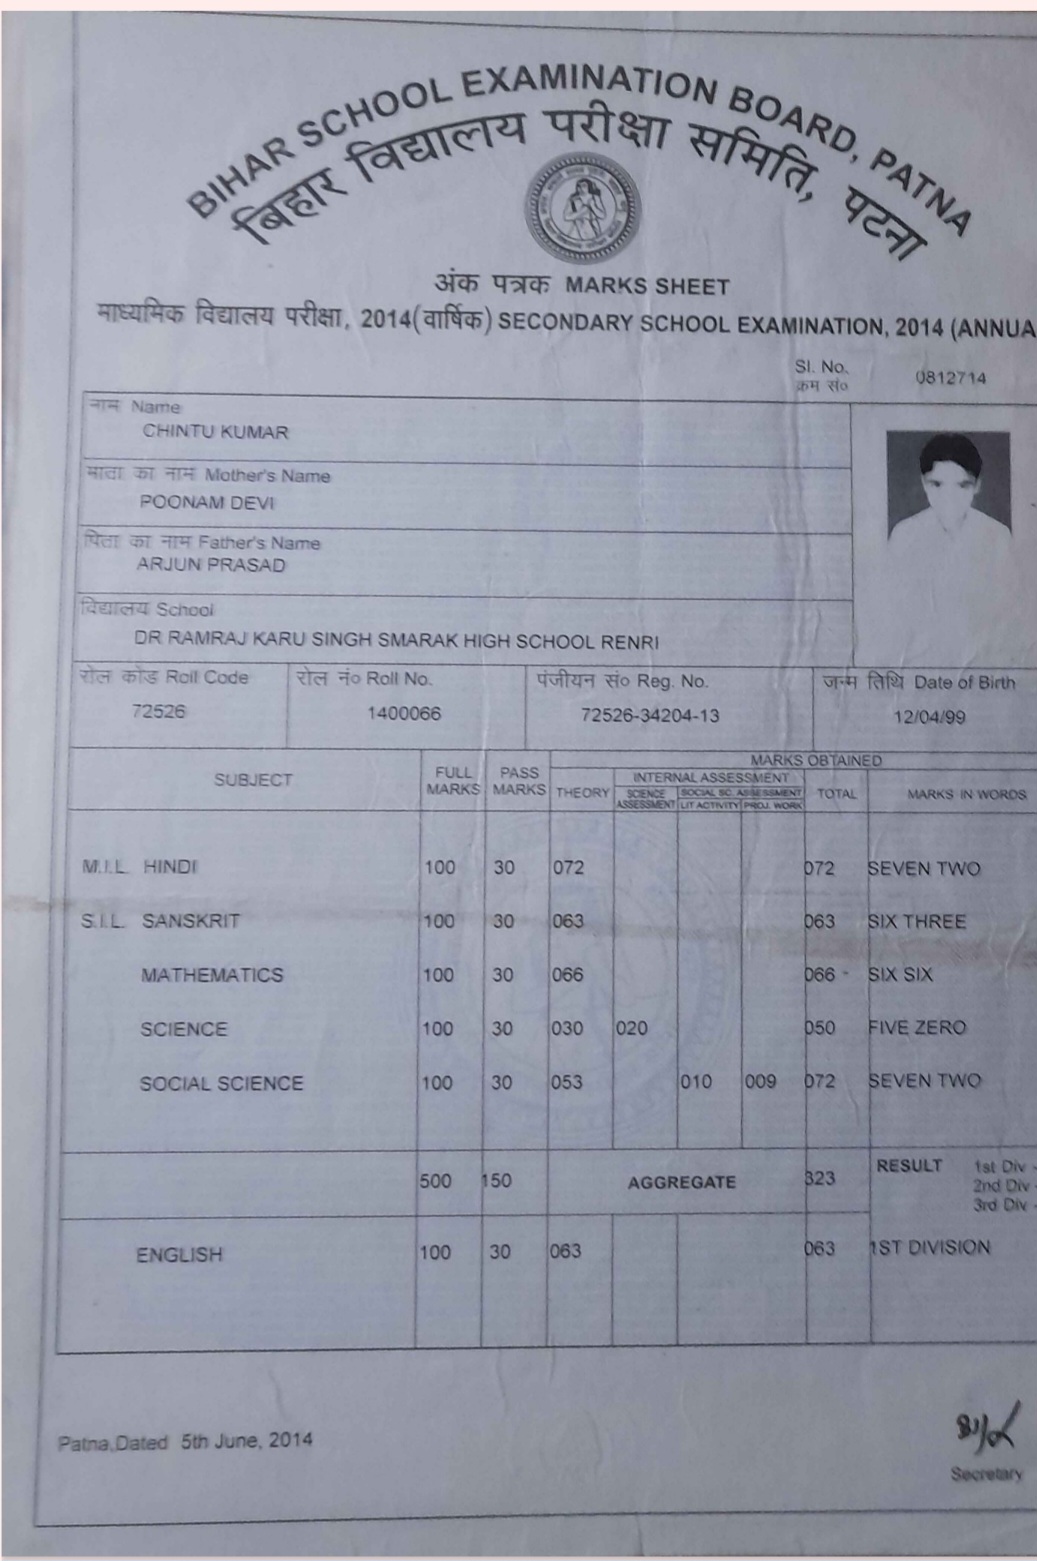 BIHAR SCHOOL EXAMINATION BOARD, PATNA
बिहार विद्यालय परीक्षा समिति, पटना
अंक पत्रक MARKS SHEET
माध्यमिक विद्यालय परीक्षा, 2014(वार्षिक) SECONDARY SCHOOL EXAMINATION, 2014 (ANNUA
Sl. No. 0812714
क्रम सं०
नाम Name
CHINTU KUMAR
माता का नाम Mother's Name
POONAM DEVI
पिता का नाम Father's Name
ARJUN PRASAD
विद्यालय School
DR RAMRAJ KARU SINGH SMARAK HIGH SCHOOL RENRI
रोल कोड Roll Code रोल नं० Roll No. पंजीयन सं० Reg. No. जन्म तिथि Date of Birth
72526 1400066 72526-34204-13 12/04/99
MARKS OBTAINED
SUBJECT FULL MARKS PASS MARKS THEORY INTERNAL ASSESSMENT TOTAL MARKS IN WORDS
SCIENCE ASSESSMENT SOCIAL SC. ASSESSMENT
LIT ACTIVITY PROJ. WORK
M.I.L. HINDI 100 30 072 072 SEVEN TWO
S.I.L. SANSKRIT 100 30 063 063 SIX THREE
MATHEMATICS 100 30 066 066 - SIX SIX
SCIENCE 100 30 030 020 050 FIVE ZERO
SOCIAL SCIENCE 100 30 053 010 009 072 SEVEN TWO
500 150 AGGREGATE 323 RESULT 1st Div -
2nd Div -
3rd Div -
ENGLISH 100 30 063 063 1ST DIVISION
Patna,Dated 5th June, 2014
Secretary